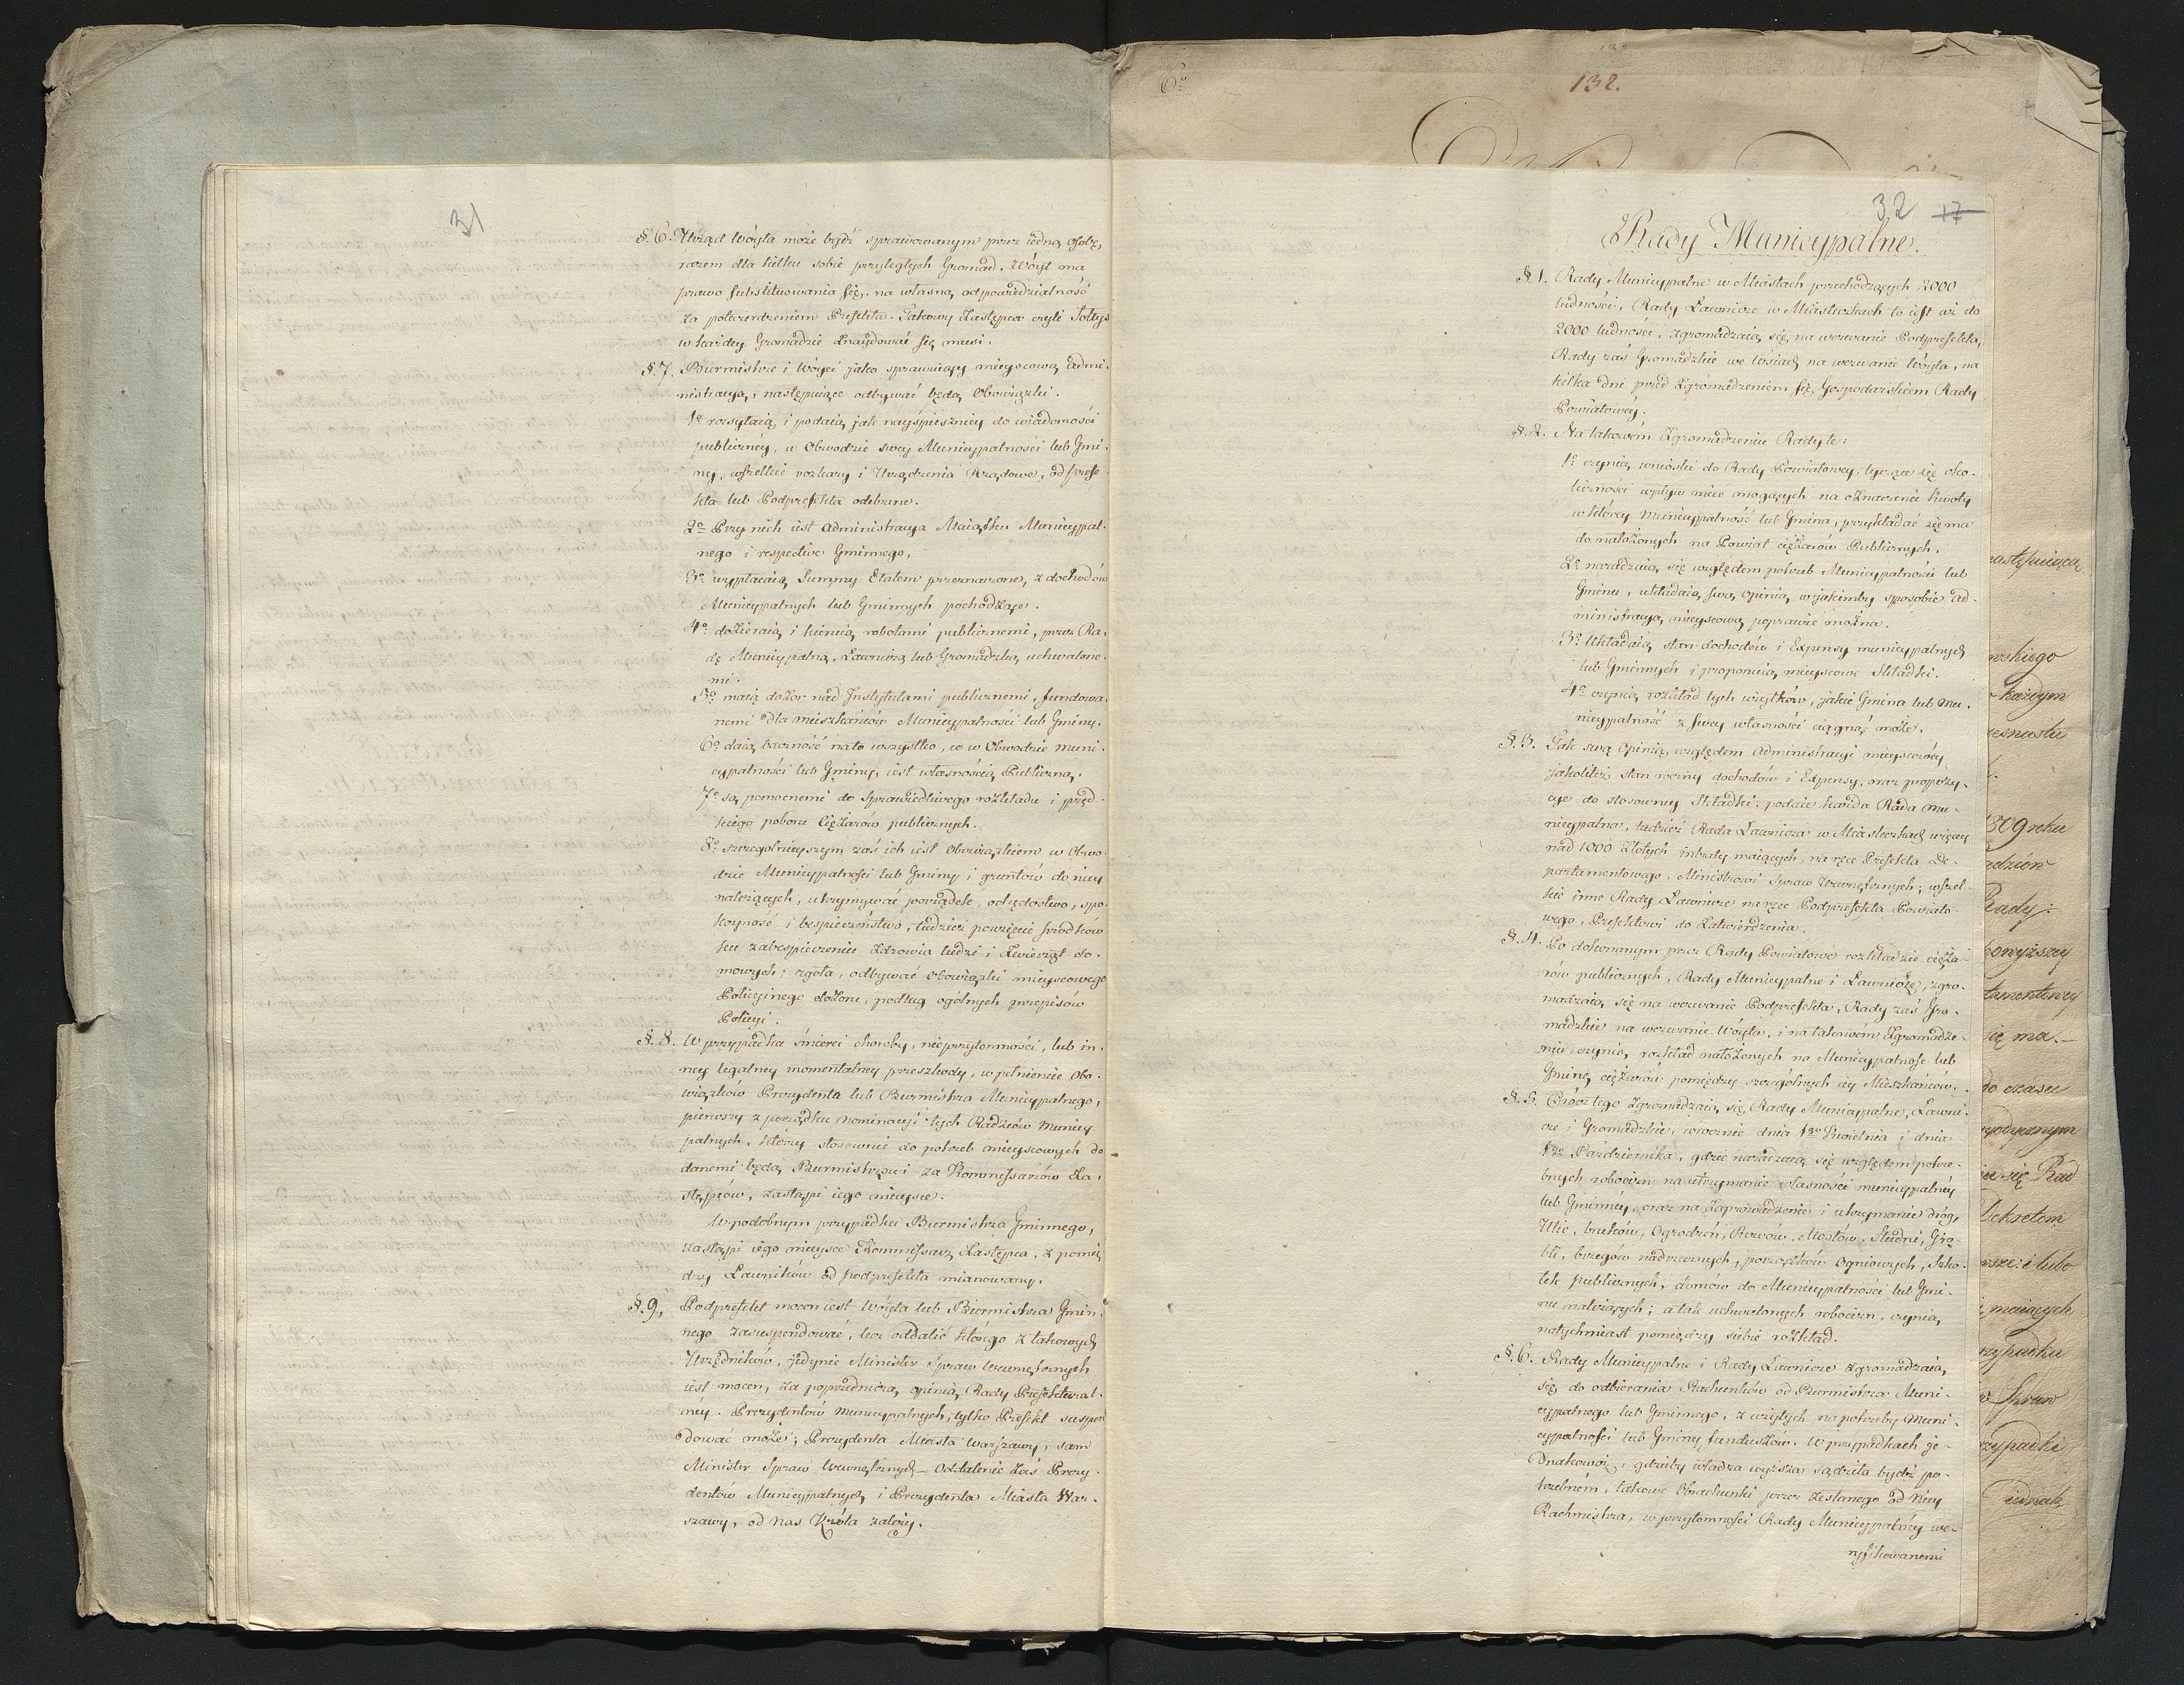 31
§. 6. Urząd Wóyta może bydź sprawowanym przez iedną osobę,
razem dla kilku sobie przyległych Gromad. Wóyt ma
prawo substituowania się, na własną odpowiedzialność
za potwierdzeniem Prefekta. Takowy Zastępca czyli Sołtys
w każdey Gromadzie znaydować się musi.
§. 7. Burmistrze i Wóyci jako sprawuiący mieyscową admi-
nistracyą, następuiące odbywać będą Obowiązki.
1o rozsyłaią i podaią jak nayśpieszniey do wiadomości
publiczney, w Obwodzie swey Municypalności lub Gmi-
ny, wszelkie rozkazy i Urządzenia Rządowe, od Prefe-
kta lub Podprefekta odebrane.
2o Przy nich iest Administracya Maiątku Municypal-
nego i respective Gminnego,
3o wypłacaią Summy Etatem przeznaczone, z dochodów
Municypalnych lub Gminnych pochodzące.
4o dozieraią i kieruią robotami publicznemi, przez Ra-
dę Municypalną, Ławniczą lub Gromadzką uchwalone-
mi.
5o maią dozor nad Instytutami publicznemi, fundowa-
nemi dla mieszkańców Municypalności lub Gminy.
6o daią baczność na to wszystko, co w Obwodzie muni-
cypalności lub Gminy, iest własnością Publiczną.
7o są pomocnemi do sprawiedliwego rozkładu i pręd-
kiego poboru Ciężarów publicznych.
8o szczegolnieyszym zaś ich iest Obowiązkiem w Obwo-
dzie Municypalności lub Gminy, i gruntów do niey
należących, utrzymywać porządek, ochędostwo, spo-
koyność i bespieczeństwo, tudzież powzięcie środków
ku zabespieczeniu Zdrowia ludzi i Zwierząt do-
mowych; zgoła, odbywać Obowiązki mieyscowego
Policyinego dozoru, podług ogólnych przepisów
Policyi.
§. 8. W przypadku śmierci choroby, nieprzytomności, lub in-
ney legalney momentalney przeszkody, w pełnieniu Obo-
wiązków Prezydenta lub Burmistrza Municypalnego,
pierwszy z porządku nominacyi tych Radźców Municy-
palnych, którzy stosownie do potrzeb mieyscowych do-
danemi będą Burmistrzowi za Kommissarzów Za-
stępców, zastąpi iego mieysce.
W podobnym przypadku Burmistrza Gminnego,
zastąpi iego mieysce Kommissarz Zastępca, z pomię-
dzy Ławników od podprefekta mianowany.
§. 9. Podprefekt mocen iest Wóyta lub Burmistrza Gmin-
nego zasuspendować, lecz oddalić którego z takowych
Urzędników, jedynie Minister Spraw Wewnętrznych
iest mocen, za poprzedniczą opinią Rady Prefektural-
ney. Prezydentów Municypalnych, tylko Prefekt suspen-
dować może; Prezydenta Miasta Warszawy, sam
Minister Spraw Wewnętrznych – Oddalenie zaś Prezy-
dentów Municypalnych i Prezydenta Miasta War-
szawy, od Nas Króla zależy.
6o
132.
32 17
Rady Municypalne.
§ 1. Rady Municypalne w Miastach przechodzących 2000
ludności, Rady Ławnicze w Miasteczkach to iest aż do
2000 ludności, zgromadzaią się na wezwanie Podprefekta,
Rady zaś Gromadzkie we Wsiach na wezwanie Wóyta, na
kilka dni przed Zgromadzeniem się Gospodarskiem Rady
Powiatowey.
§. 2. Na takowém Zgromadzeniu Rady te:
1o czynią wnioski do Rady Powiatowey, tyczące się oko-
liczności wpływ mieć mogących na oznaczenie kwoty
w którey Municypalność lub Gmina, przykładać się ma
do nałożonych na Powiat ciężarów Publicznych.
2o naradzaią się względem potrzeb Municypalności lub
Gminu, układaią swą opinią, w jakimby sposobie ad-
ministracyą mieyscową poprawić można.
3o Układaią stan dochodów i Expensy municypalnych
lub Gminnych i proponuią mieyscowe Składki.
4o czynią rozkład tych użytków, jakie Gmina lub Mu-
nicypalność z swey własności ciągnąć może.
§. 3. Tak swą opinią względem administracyi mieyscowéy
jakoliteż stan roczny dochodów i Expensy, oraz propozy-
cye do stosowney Składki, podaie każda Rada Mu-
nicypalna, tudzież Rada Ławnicza w Miasteczkach więcey
nad 1000 Złotych intraty maiących, na ręce Prefekta De-
partamentowego, Ministrowi Spraw Wewnętrznych; wszel-
kie inne Rady Ławnicze na ręce Podprefekta Powiato-
wego, Prefektowi do Zatwierdzenia.
§. 4. Po dokonanym przez Rady Powiatowe rozkładzie cięża-
rów publicznych, Rady Municypalne i Ławnicze, zgro-
madzaią się na wezwanie Podprefekta, Rady zaś Gro-
madzkie na wezwanie Wóyta, i na takowém Zgromadze-
niu czynią rozkład nałożonych na Municypalność lub
Gminę ciężarów pomiędzy szczególnych iey Mieszkańców.
§. 5. Prócz tego zgromadzaią się Rady Municypalne, Ławni-
cze i Gromadzkie, corocznie dnia 1go Kwietnia i dnia
1go Października, gdzie naradzaią się względem potrze-
bnych robocizn na utrzymanie własności municypalnéy
lub Gminnéy, oraz na zaprowadzenie i utrzymanie dróg,
Ulic, bruków, Ogrodzeń, Rowów, Mostów, Studni, Gro-
bli, brzegów nadrzecznych, porządków Ogniowych, Szko-
łek publicznych, domów do Municypalności lub Gmi-
nu należących; a tak uchwalonych robocizn, czynią
natychmiast pomiędzy siebie rozkład.
§. 6. Rady Municypalne i Rady Ławnicze zgromadzaią
się do odbierania Rachunków od Burmistrza Muni-
cypalnego lub Gminnego, z użytych na potrzeby Muni-
cypalności lub Gminy funduszów. W przypadkach je-
dnakowoż, gdzieby władza wyższa sądziła bydź po-
trzebném, takowe Obrachunki przez zesłanego od Niey
Rachmistrza, w przytomności Rady Municypalnéy we-
ryfikowanemi
następuiącą
wskiego
każdym
1809 roku
Rady:
powyższey
tamentowey
się ma.
do czasu
się Rad
Dekretem
maiących
przypadku
w Spraw
przypadki
iednak